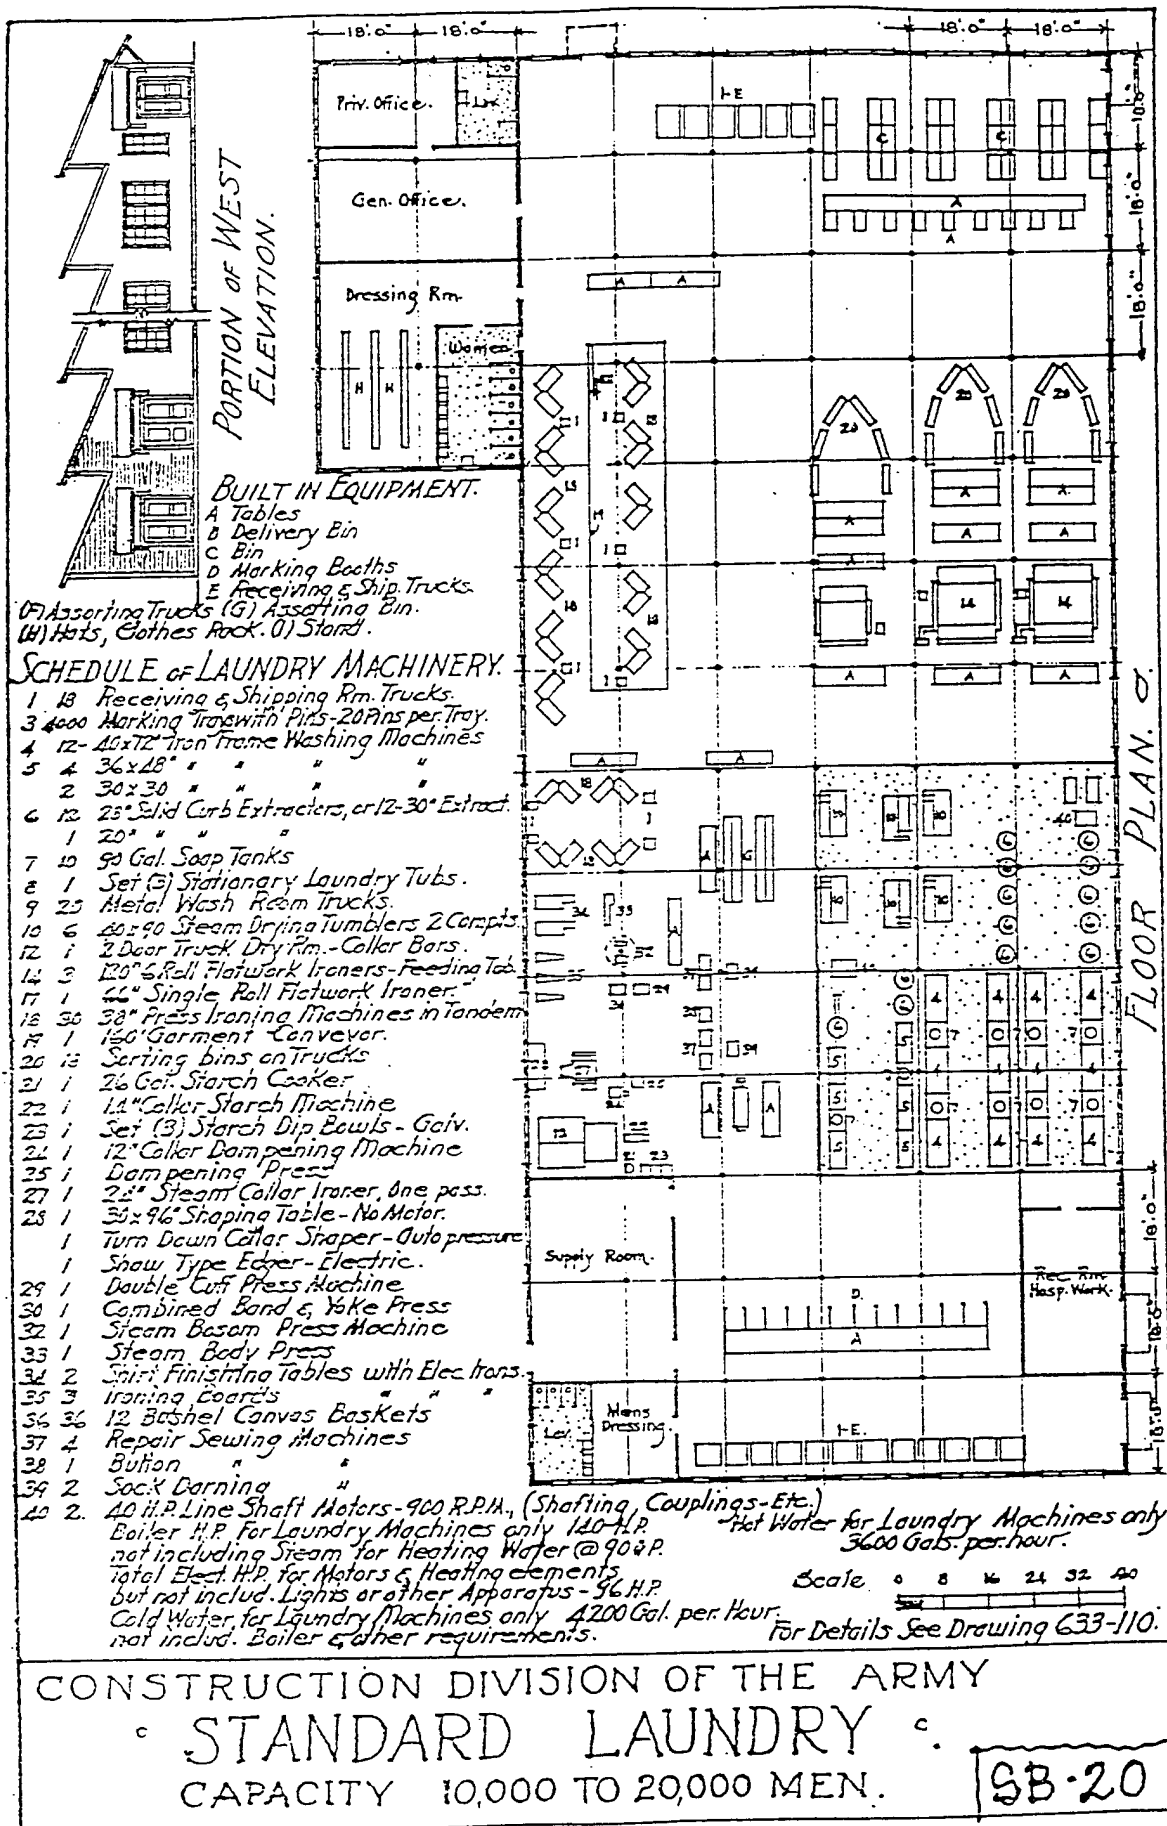 18'.0" 18'.0" 18'.0" 18'.0"
Priv. Office. Lav.
Gen. Office.
Dressing Rm.
Women
PORTION OF WEST
ELEVATION.
18'.0"
18'.0"
18'.0"
BUILT IN EQUIPMENT.
A Tables
B Delivery Bin
C Bin
D Marking Booths
E Receiving & Ship. Trucks.
(F) Assorting Trucks (G) Assorting Bin.
(H) Hats, Clothes Rack. (I) Stand.
SCHEDULE OF LAUNDRY MACHINERY.
1 18 Receiving & Shipping Rm. Trucks.
3 4000 Marking Trays with Pins-20 Pins per Tray.
4 12- 40x72" Iron Frame Washing Machines
5 4 36x48" " " " "
2 30x30 " " " "
6 12 28" Solid Curb Extracters, or 12-30" Extract.
1 20" " " "
7 10 90 Gal. Soap Tanks
8 1 Set (3) Stationary Laundry Tubs.
9 25 Metal Wash Room Trucks.
10 6 40x90 Steam Drying Tumblers 2 Compts.
12 1 2 Door Truck Dry Rm.-Collar Bars.
14 3 120" 6 Roll Flatwork Ironers-Feeding Tab.
17 1 44" Single Roll Flatwork Ironer.
18 30 38" Press Ironing Machines in Tandem
19 1 160' Garment Conveyor.
20 18 Sorting bins on Trucks
21 1 26 Gal. Starch Cooker
22 1 14" Collar Starch Machine
23 1 Set (3) Starch Dip Bowls - Galv.
24 1 12" Collar Dampening Machine
25 1 Dampening Press
27 1 24" Steam Collar Ironer, One pass.
28 1 30x96" Shaping Table-No Motor.
1 Turn Down Collar Shaper-Auto pressure
1 Shaw Type Edger-Electric.
29 1 Double Cuff Press Machine
30 1 Combined Band & Yoke Press
32 1 Steam Bosom Press Machine
33 1 Steam Body Press
34 2 Shirt Finishing Tables with Elec Irons.
35 3 Ironing Boards " " "
36 36 12 Bushel Canvas Baskets
37 4 Repair Sewing Machines
38 1 Button " "
39 2 Sock Darning "
40 2. 40 H.P. Line Shaft Motors-900 R.P.M., (Shafting, Couplings-Etc.)
Boiler H.P. For Laundry Machines only 140-H.P.
not including Steam for Heating Water @ 90#P.
Total Elect. H.P. for Motors & Heating elements
but not includ. Lights or other Apparatus - 96 H.P.
Cold Water for Laundry Machines only 4200 Gal. per Hour.
not includ. Boiler & other requirements.
Supply Room.
Rec. Rm.
Hosp. Work.
Lav.
Mens
Dressing.
1-E.
18'.0"
18'.0"
18'.0"
FLOOR PLAN.
Hot Water for Laundry Machines only
3600 Gals. per hour.
Scale 0 8 16 24 32 40
For Details See Drawing 633-110.
CONSTRUCTION DIVISION OF THE ARMY
STANDARD LAUNDRY
CAPACITY 10,000 TO 20,000 MEN.
SB-20